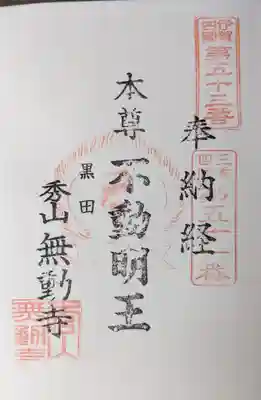 伊賀
四国
第五十三番
奉納経
本尊 不動明王
黒田
秀山 無動寺